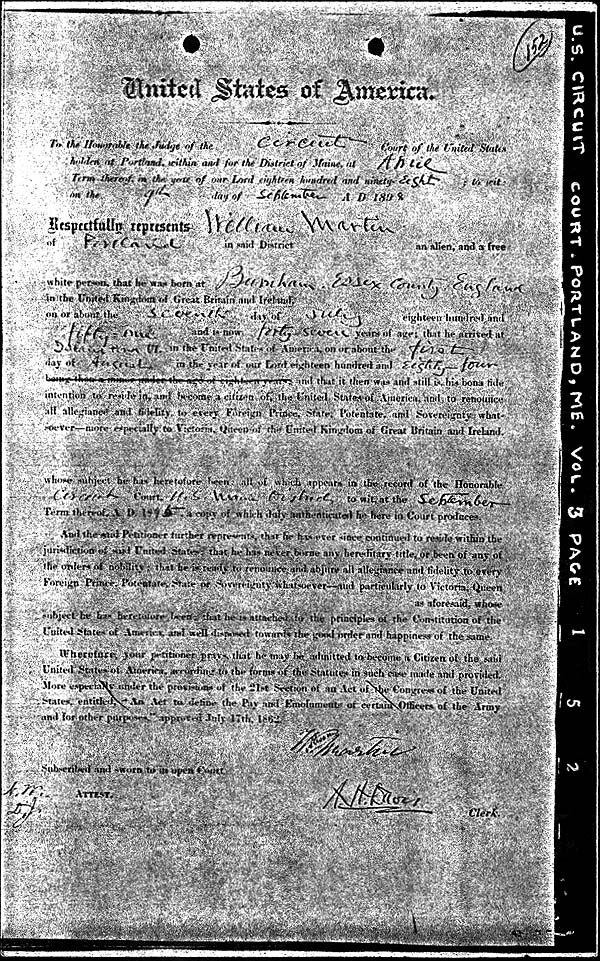 152
United States of America.
To the Honorable the Judge of the Circuit Court of the United States
holden at Portland, within and for the District of Maine, at April
Term thereof, in the year of our Lord eighteen hundred and ninety-eight; to wit:
on the 9th day of September A. D. 1898
Respectfully represents William Martin
of Portland in said District an alien, and a free
white person, that he was born at Burnham, Essex County, England
in the United Kingdom of Great Britain and Ireland,
on or about the seventh day of July eighteen hundred and
fifty-one and is now forty-seven years of age; that he arrived at
in the United States of America, on or about the first
day of August in the year of our Lord eighteen hundred and eighty-four
being then a minor under the age of eighteen years and that it then was and still is, his bona fide
intention to reside in, and become a citizen of, the United States of America, and to renounce
all allegiance and fidelity, to every Foreign Prince, State, Potentate, and Sovereignty what-
soever—more especially to Victoria, Queen of the United Kingdom of Great Britain and Ireland.
whose subject he has heretofore been: all of which appears in the record of the Honorable
Circuit Court, U.S. Maine District, to wit, at the September
Term thereof, A. D. 189 a copy of which duly authenticated he here in Court produces.
And the said Petitioner further represents, that he has ever since continued to reside within the
jurisdiction of said United States; that he has never borne any hereditary title, or been of any of
the orders of nobility; that he is ready to renounce and abjure all allegiance and fidelity to every
Foreign Prince, Potentate, State or Sovereignty whatsoever—and particularly to Victoria, Queen
as aforesaid, whose
subject he has heretofore been; that he is attached to the principles of the Constitution of the
United States of America, and well disposed towards the good order and happiness of the same.
Wherefore, your petitioner prays, that he may be admitted to become a Citizen of the said
United States of America, according to the forms of the Statutes in such case made and provided.
More especially under the provisions of the 21st Section of an Act of the Congress of the United
States, entitled "An Act to define the Pay and Emoluments of certain Officers of the Army
and for other purposes," approved July 17th, 1862.
Wm Martin
Subscribed and sworn to in open Court.
ATTEST,
A. H. Davis
Clerk.
U.S. CIRCUIT COURT. PORTLAND, ME. VOL. 3 PAGE 152